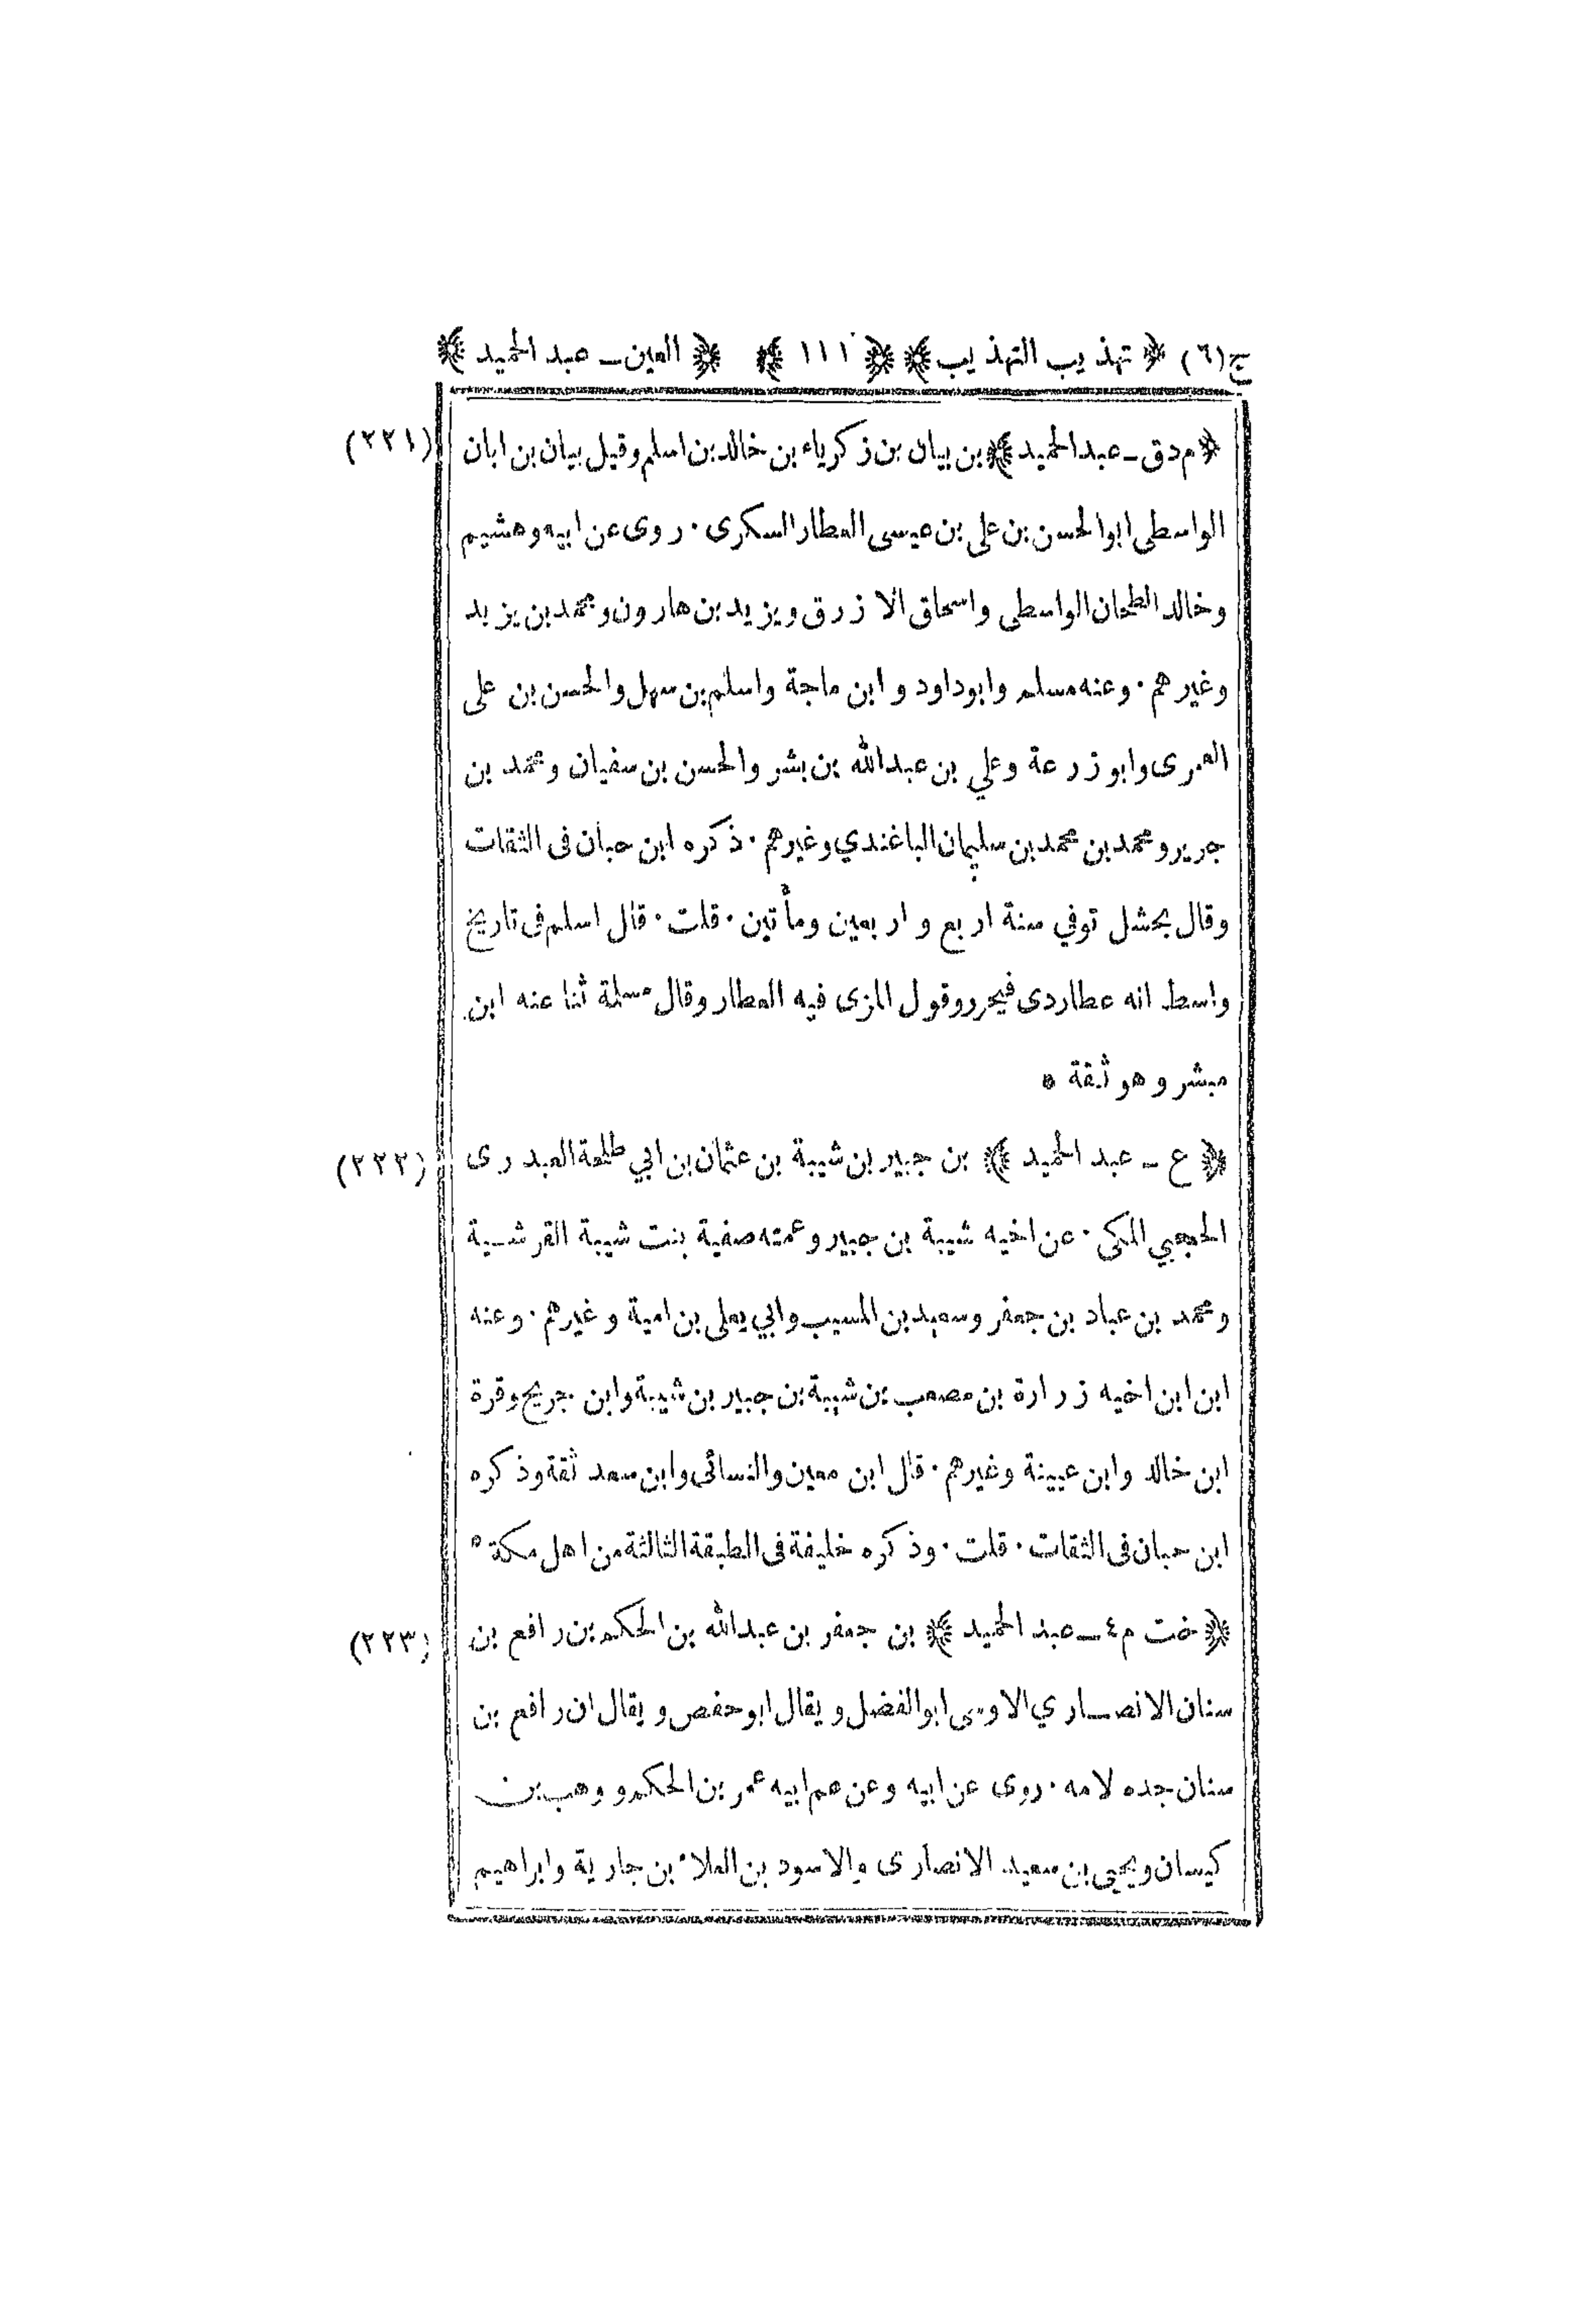 ج(٦) ﴿ تهذيب التهذيب ﴾ ﴿ ١١١ ﴾ ﴿ العين ـ عبد الحميد ﴾
﴿ م د ق ـ عبد الحميد ﴾ بن بيان بن زكرياء بن خالد بن اسلم وقيل بيان بن ابان (٢٢١)
الواسطى ابو الحسن بن على بن عيسى العطار السكرى ٠ روى عن ابيه وهشيم
وخالد الطحان الواسطى واسحاق الازرق ويزيد بن هارون ومحمد بن يزيد
وغيرهم ٠ وعنه مسلم وابوداود وابن ماجة واسلم بن سهل والحسن بن على
العمرى وابوزرعة وعلي بن عبدالله بن بشر والحسن بن سفيان ومحمد بن
جرير ومحمد بن محمد بن سليمان الباغندي وغيرهم ٠ ذكره ابن حبان فى الثقات
وقال بحشل توفي سنة اربع واربعين ومأتين ٠ قلت ٠ قال اسلم فى تاريخ
واسط انه عطاردى فيحرر وقول المزى فيه العطار وقال مسلمة ثنا عنه ابن
مبشر وهو ثقة ٥
﴿ ع ـ عبد الحميد ﴾ بن جبير بن شيبة بن عثمان بن ابي طلحة العبدرى (٢٢٢)
الحجبي المكى ٠ عن اخيه شيبة بن جبير وعمته صفية بنت شيبة القرشية
ومحمد بن عباد بن جعفر وسعيد بن المسيب وابي يعلى بن امية وغيرهم ٠ وعنه
ابن ابن اخيه زرارة بن مصعب بن شيبة بن جبير بن شيبة وابن جريج وقرة
ابن خالد وابن عيينة وغيرهم ٠ قال ابن معين والنسائى وابن سعد ثقة وذكره
ابن حبان فى الثقات ٠ قلت ٠ وذكره خليفة فى الطبقة الثالثة من اهل مكة ٥
﴿ خت م ٤ ـ عبد الحميد ﴾ بن جعفر بن عبدالله بن الحكم بن رافع بن (٢٢٣)
سنان الانصاري الاوسى ابوالفضل ويقال ابو حفص ويقال ان رافع بن
سنان جده لامه ٠ روى عن ابيه وعن عم ابيه عمر بن الحكم و وهب بن
كيسان ويحيى بن سعيد الانصارى والاسود بن العلاء بن جارية وابراهيم